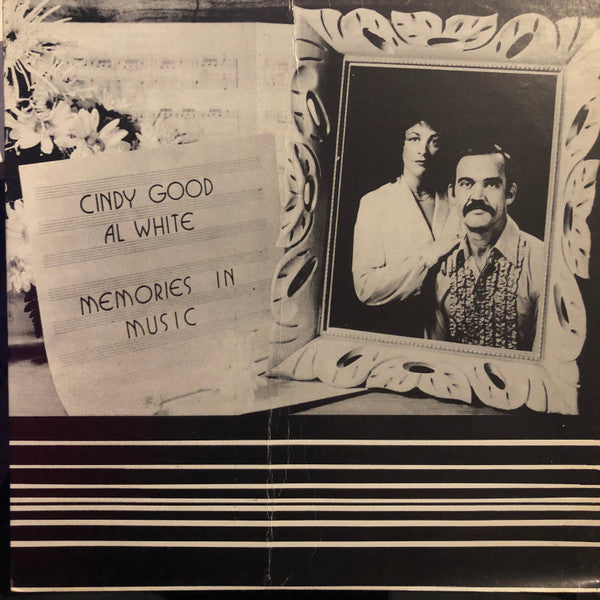 CINDY GOOD
AL WHITE
MEMORIES IN
MUSIC